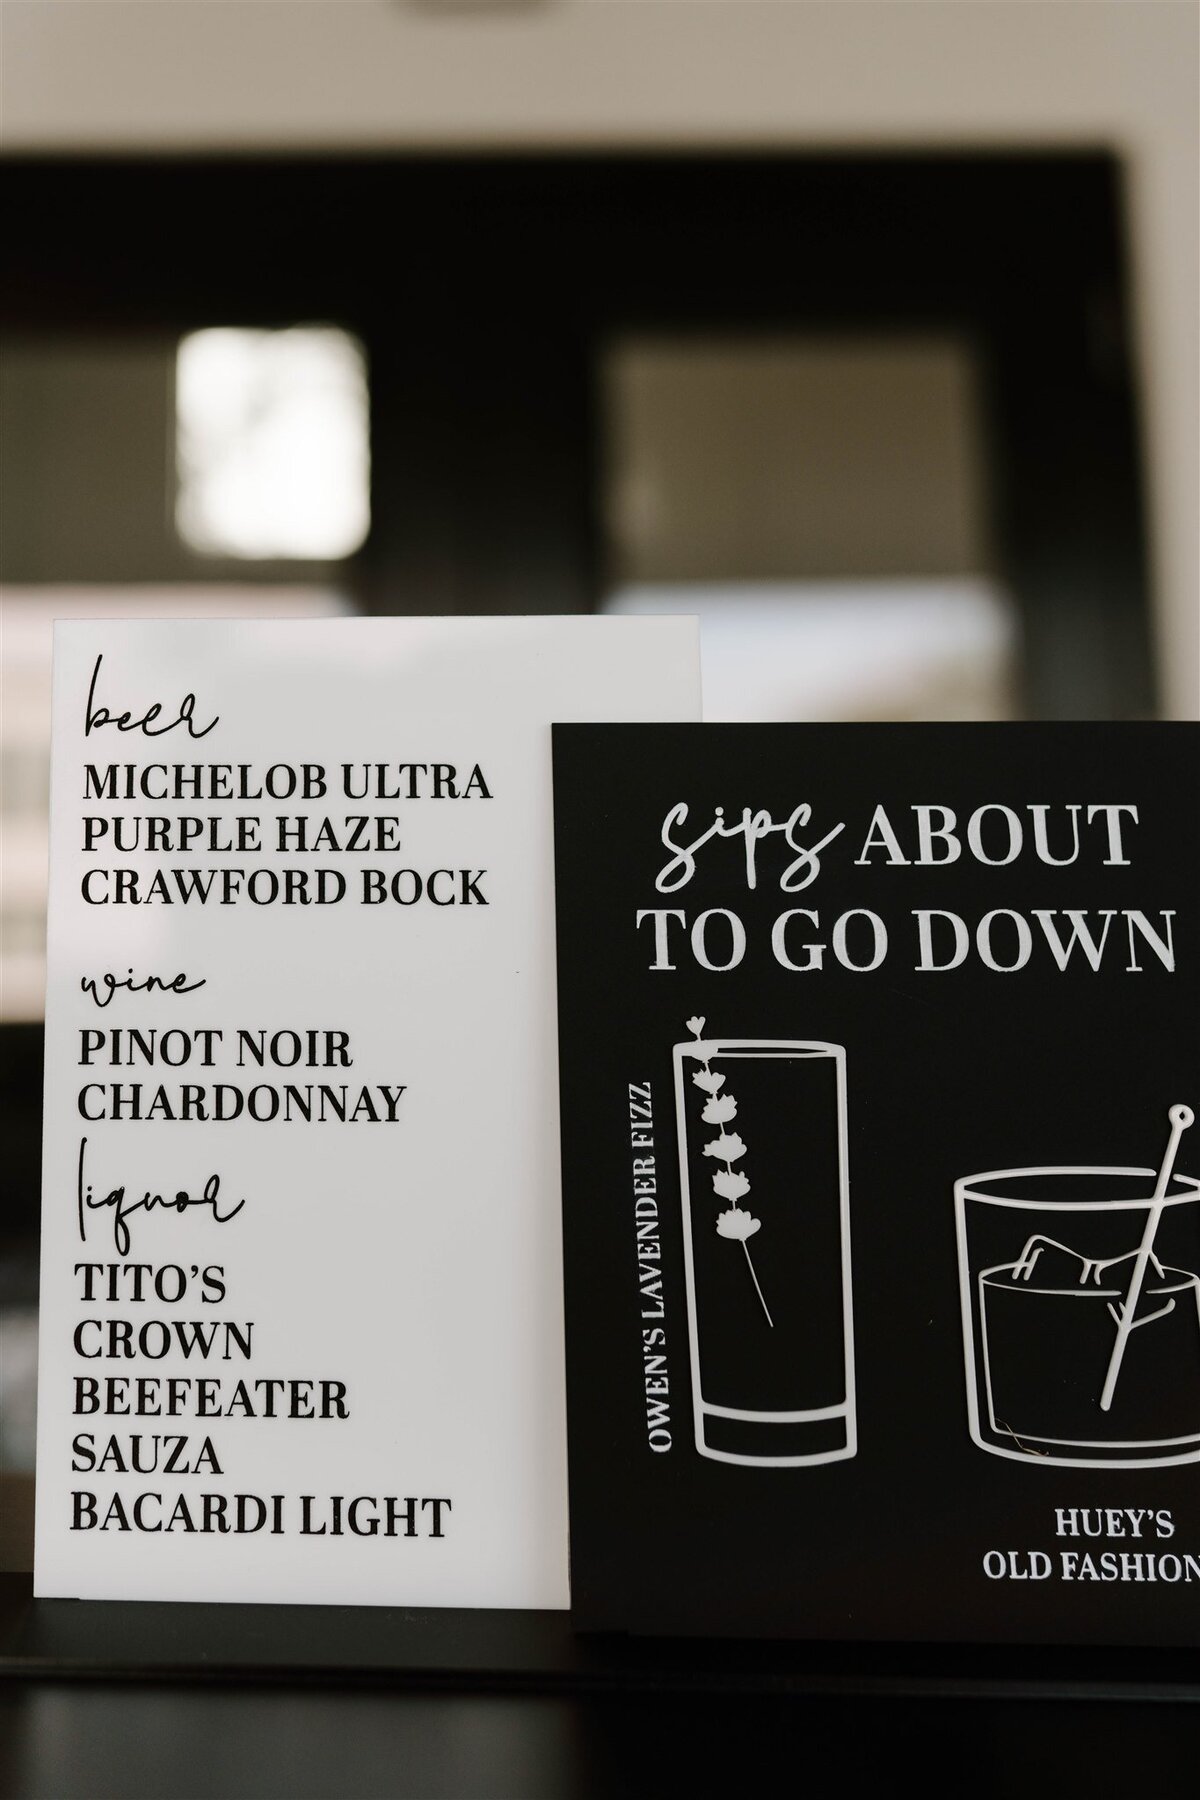 beer
MICHELOB ULTRA
PURPLE HAZE
CRAWFORD BOCK
wine
PINOT NOIR
CHARDONNAY
liquor
TITO'S
CROWN
BEEFEATER
SAUZA
BACARDI LIGHT
sips ABOUT
TO GO DOWN
OWEN'S LAVENDER FIZZ
HUEY'S
OLD FASHION